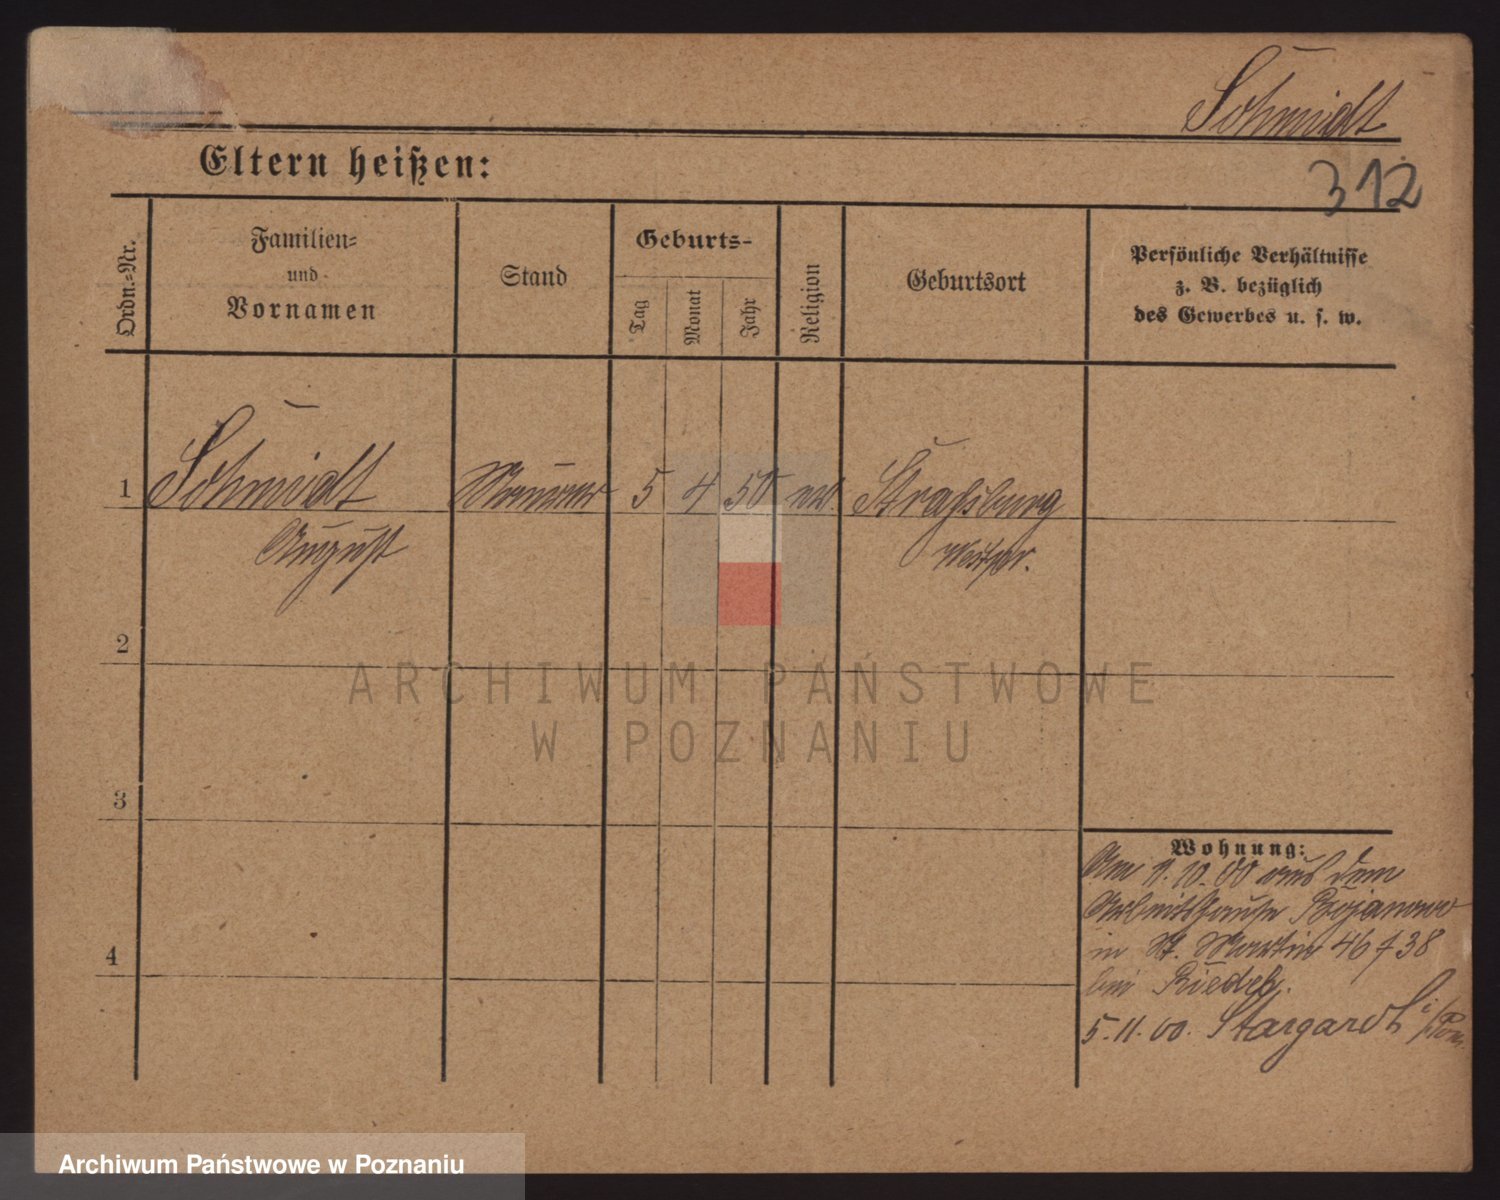 Schmidt
Eltern heißen:
312
Ordn.=Nr.
Familien=
und
Vornamen
Stand
Geburts-
Tag
Monat
Jahr
Religion
Geburtsort
Persönliche Verhältnisse
z. B. bezüglich
des Gewerbes u. s. w.
1 Schmidt Maurer 5 4 50 ev. Straßburg
August Westpr.
2
3
4
Wohnung:
Am 11.10.00 aus dem
Arbeitshause Bojanowo
in St. Martin 46 f 38
bei Riedel.
5.11.00. Stargardt i/Pom.
ARCHIWUM PAŃSTWOWE
W POZNANIU
Archiwum Państwowe w Poznaniu